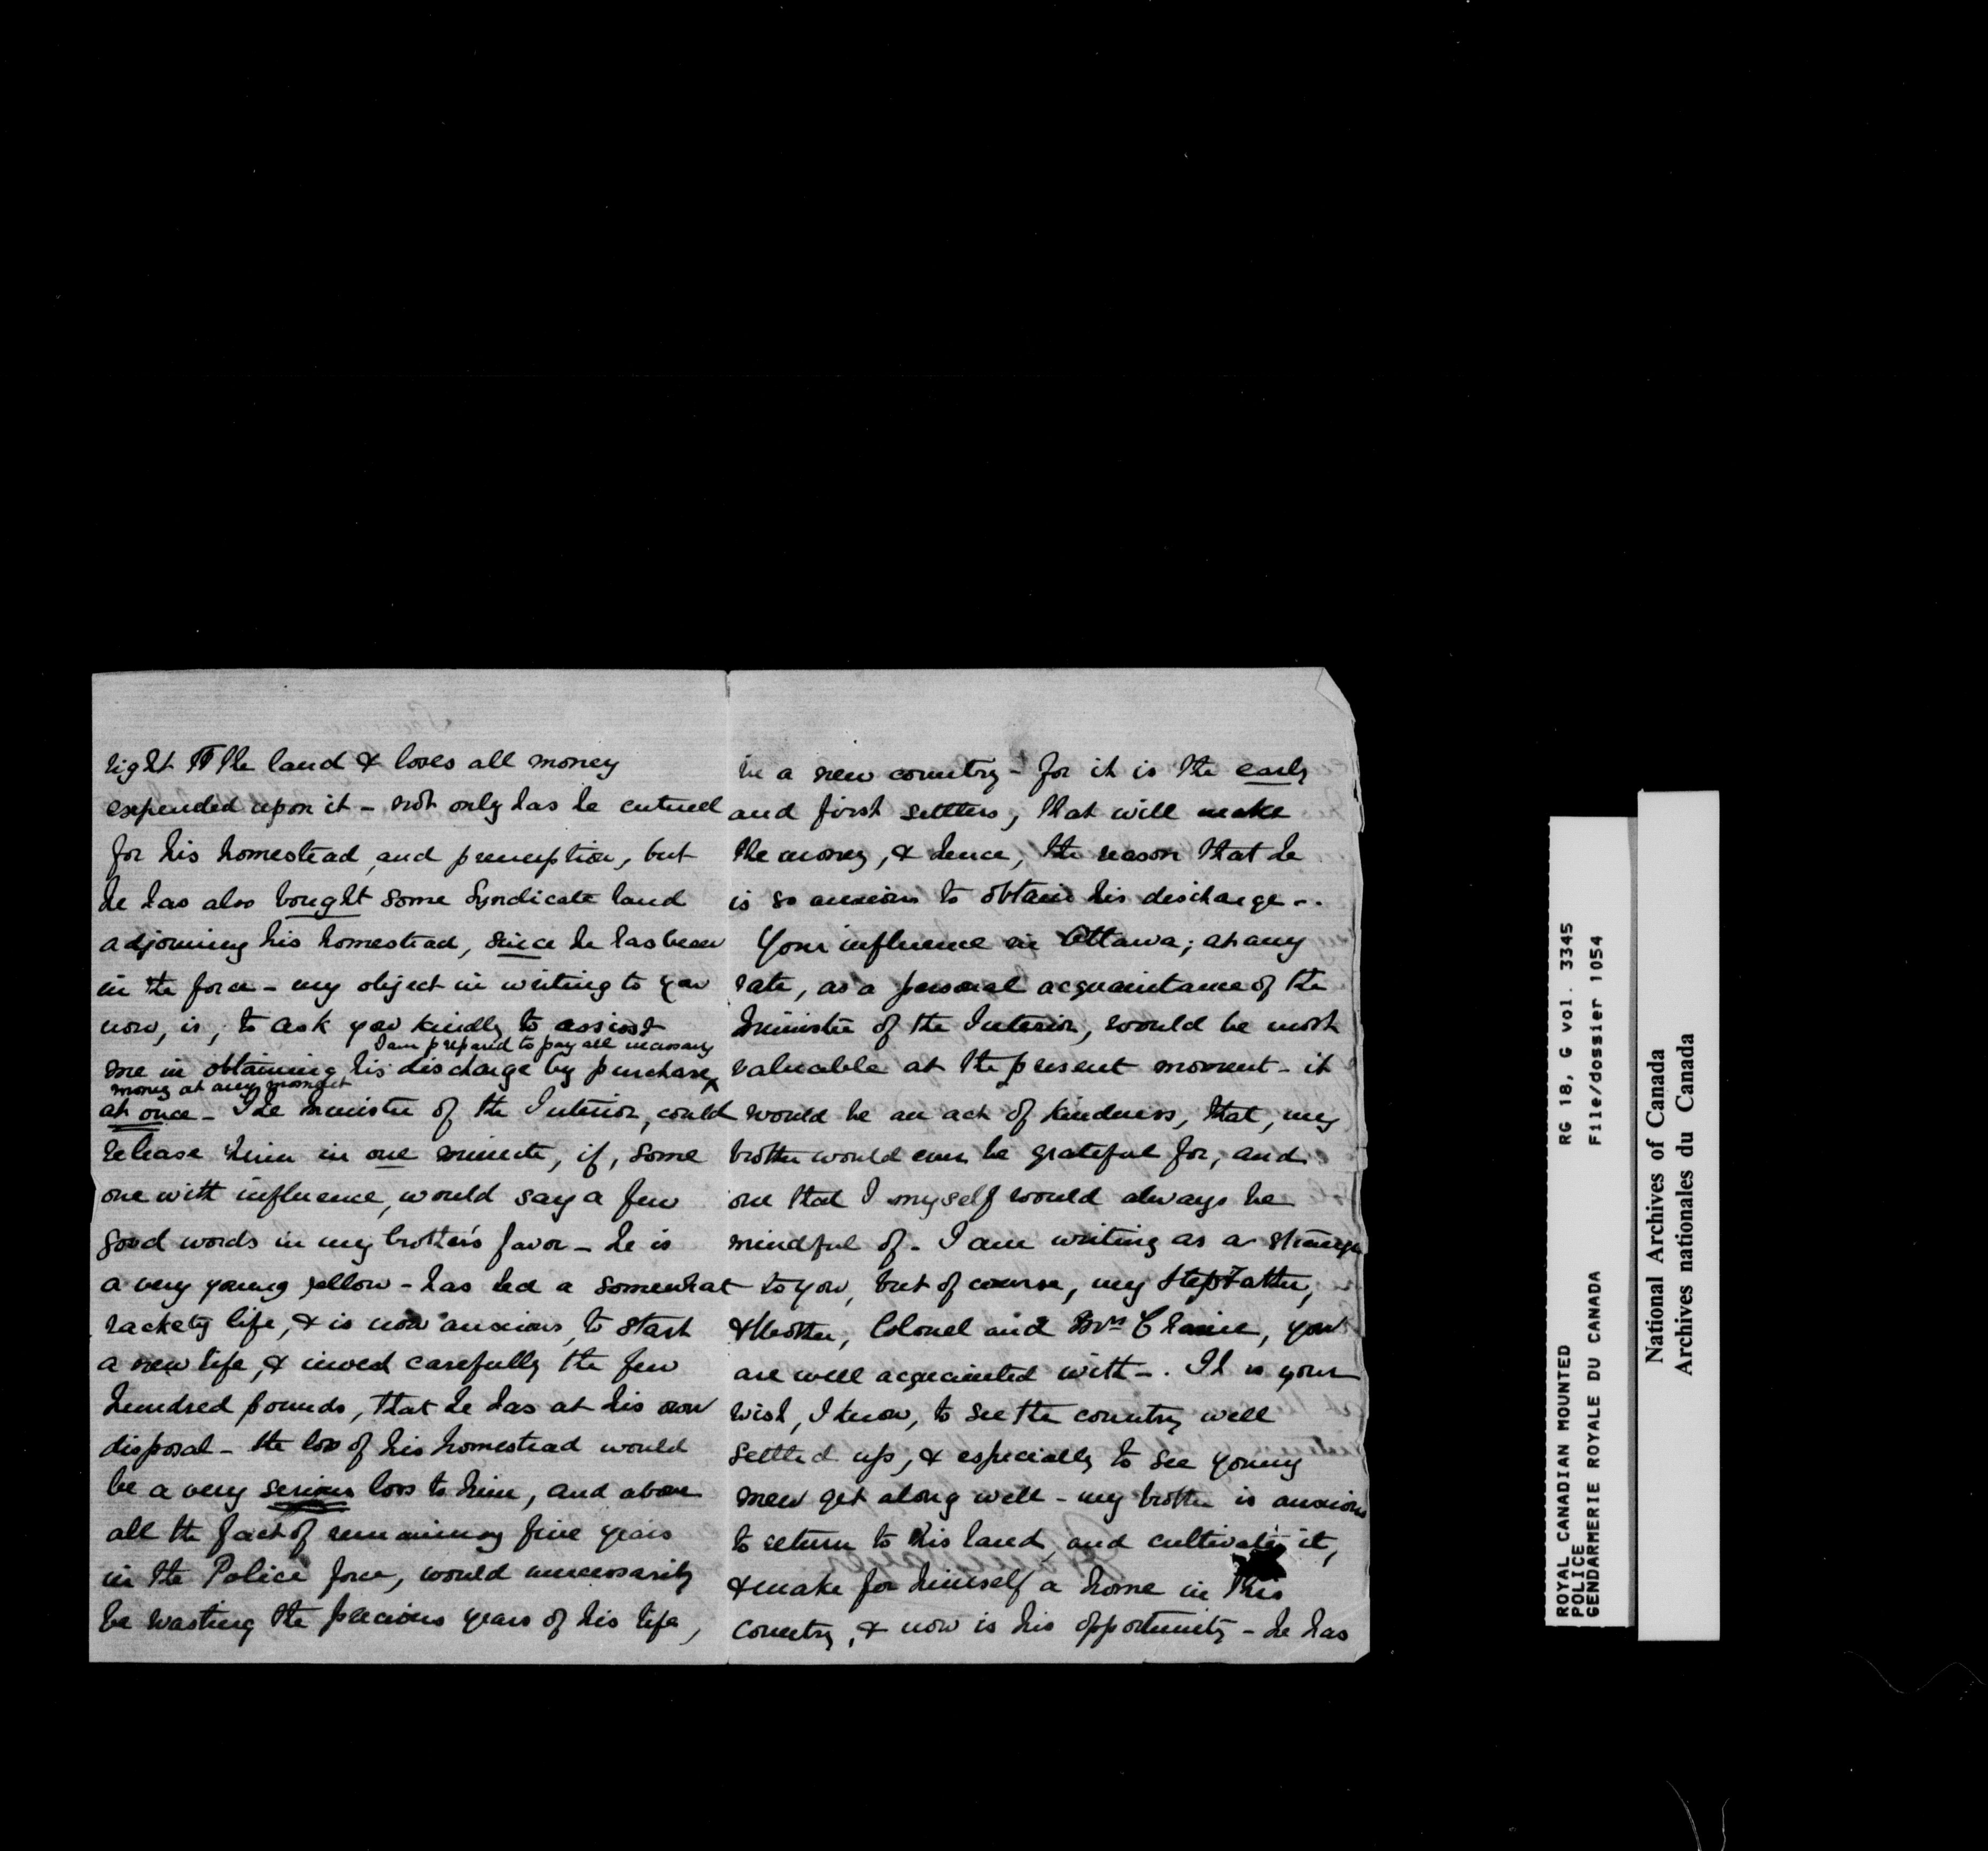 right to the land & loses all money
expended upon it - not only has he entered
for his homestead, and preemption, but
he has also bought some Syndicate land
adjoining his homestead, since he has been
in the force - my object in writing to you
now, is, to ask you kindly to assist
I am prepared to pay all necessary
me in obtaining his discharge by purchase x
money at any moment
at once - The minister of the Interior, could
release him in one minute, if, some
one with influence, would say a few
good words in my brother's favor - he is
a very young fellow - has led a somewhat
rackety life, & is now anxious, to start
a new life, & invest carefully the few
hundred pounds, that he has at his own
disposal - the loss of his homestead would
be a very serious loss to him, and above
all the fact of remaining five years
in the Police force, would unnecessarily
be wasting the precious years of his life,
in a new country - for it is the early
and first settlers, that will make
the money, & hence, the reason that he
is so anxious to obtain his discharge -.
Your influence in Ottawa; at any
rate, as a personal acquaintance of the
Minister of the Interior, would be most
valuable at the present moment - it
would be an act of kindness, that, my
brother would ever be grateful for, and
one that I myself would always be
mindful of - I am writing as a stranger
to you, but of course, my Step Father,
& Mother, Colonel and Mrs you
are well acquainted with -. It is your
wish, I know, to see the country well
settled up, & especially to see young
men get along well - my brother is anxious
to return to his land, and cultivate it,
& make for himself a home in this
country, & now is his opportunity - he has
ROYAL CANADIAN MOUNTED
POLICE
GENDARMERIE ROYALE DU CANADA
RG 18, G vol. 3345
File/dossier 1054
National Archives of Canada
Archives nationales du Canada